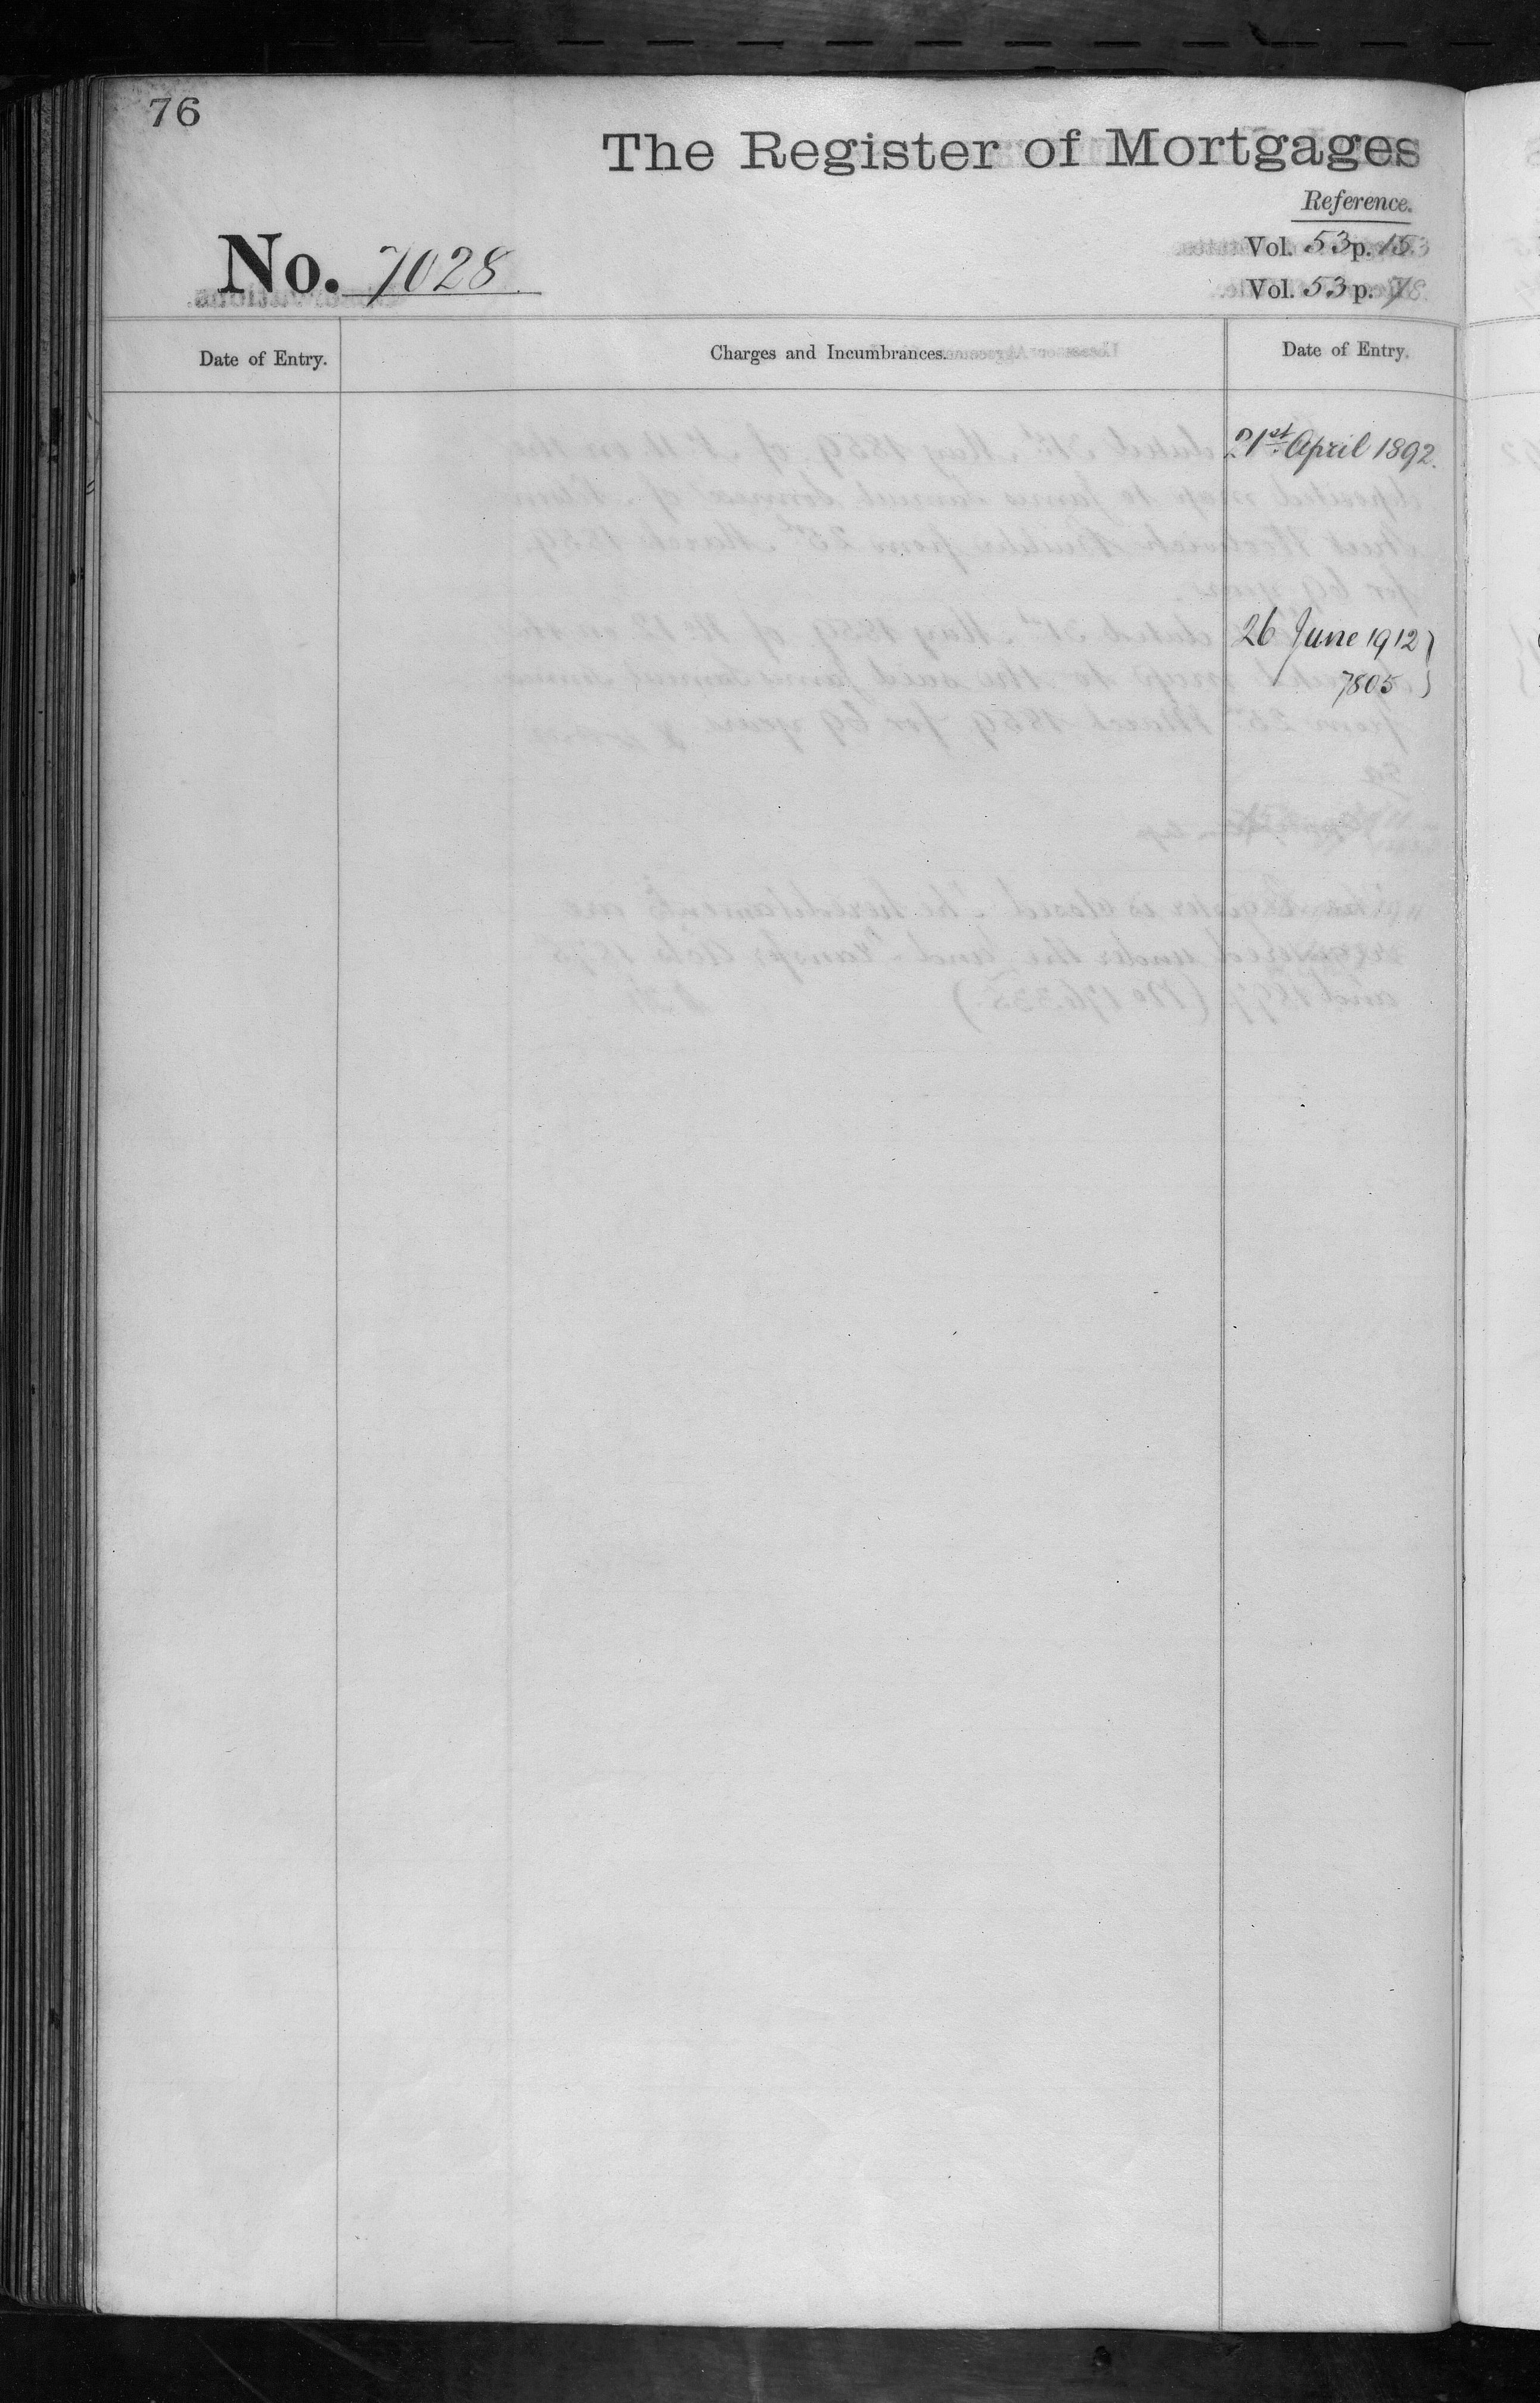 76
The Register of Mortgages
Reference.
No. 7028
Vol. 53 p. 15
Vol. 53 p.
Date of Entry.
Charges and Incumbrances.
Date of Entry.
21st April 1892.
26 June 1912 }
7805 }